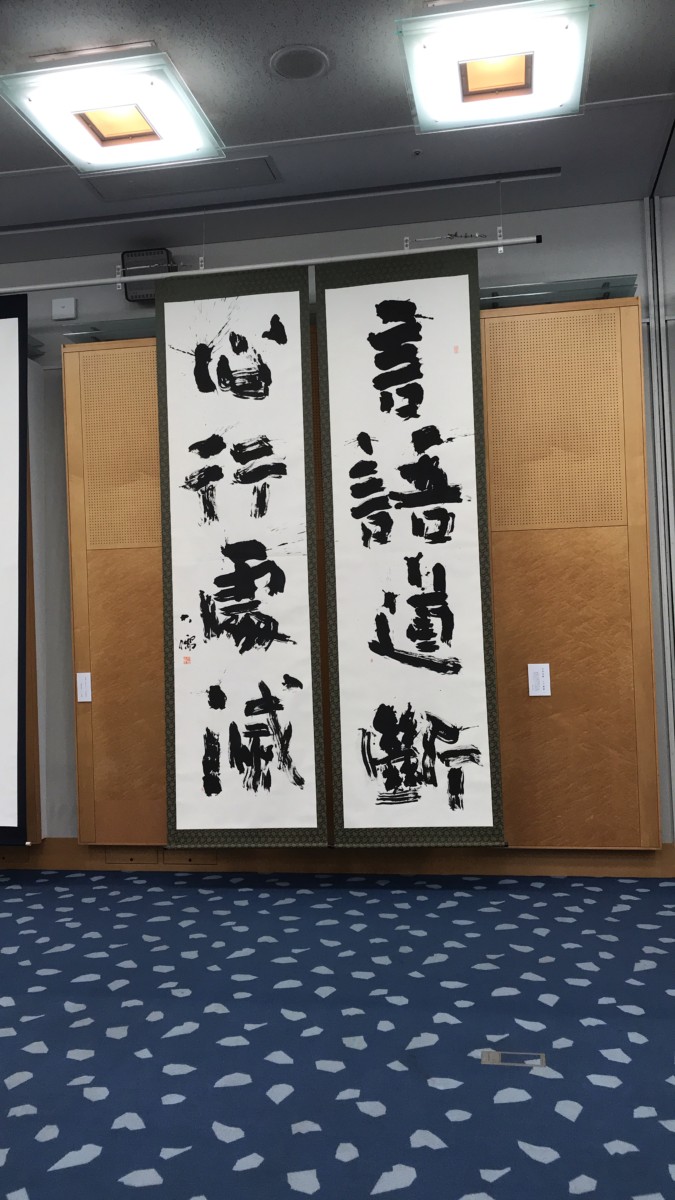 言語道斷
心行處滅